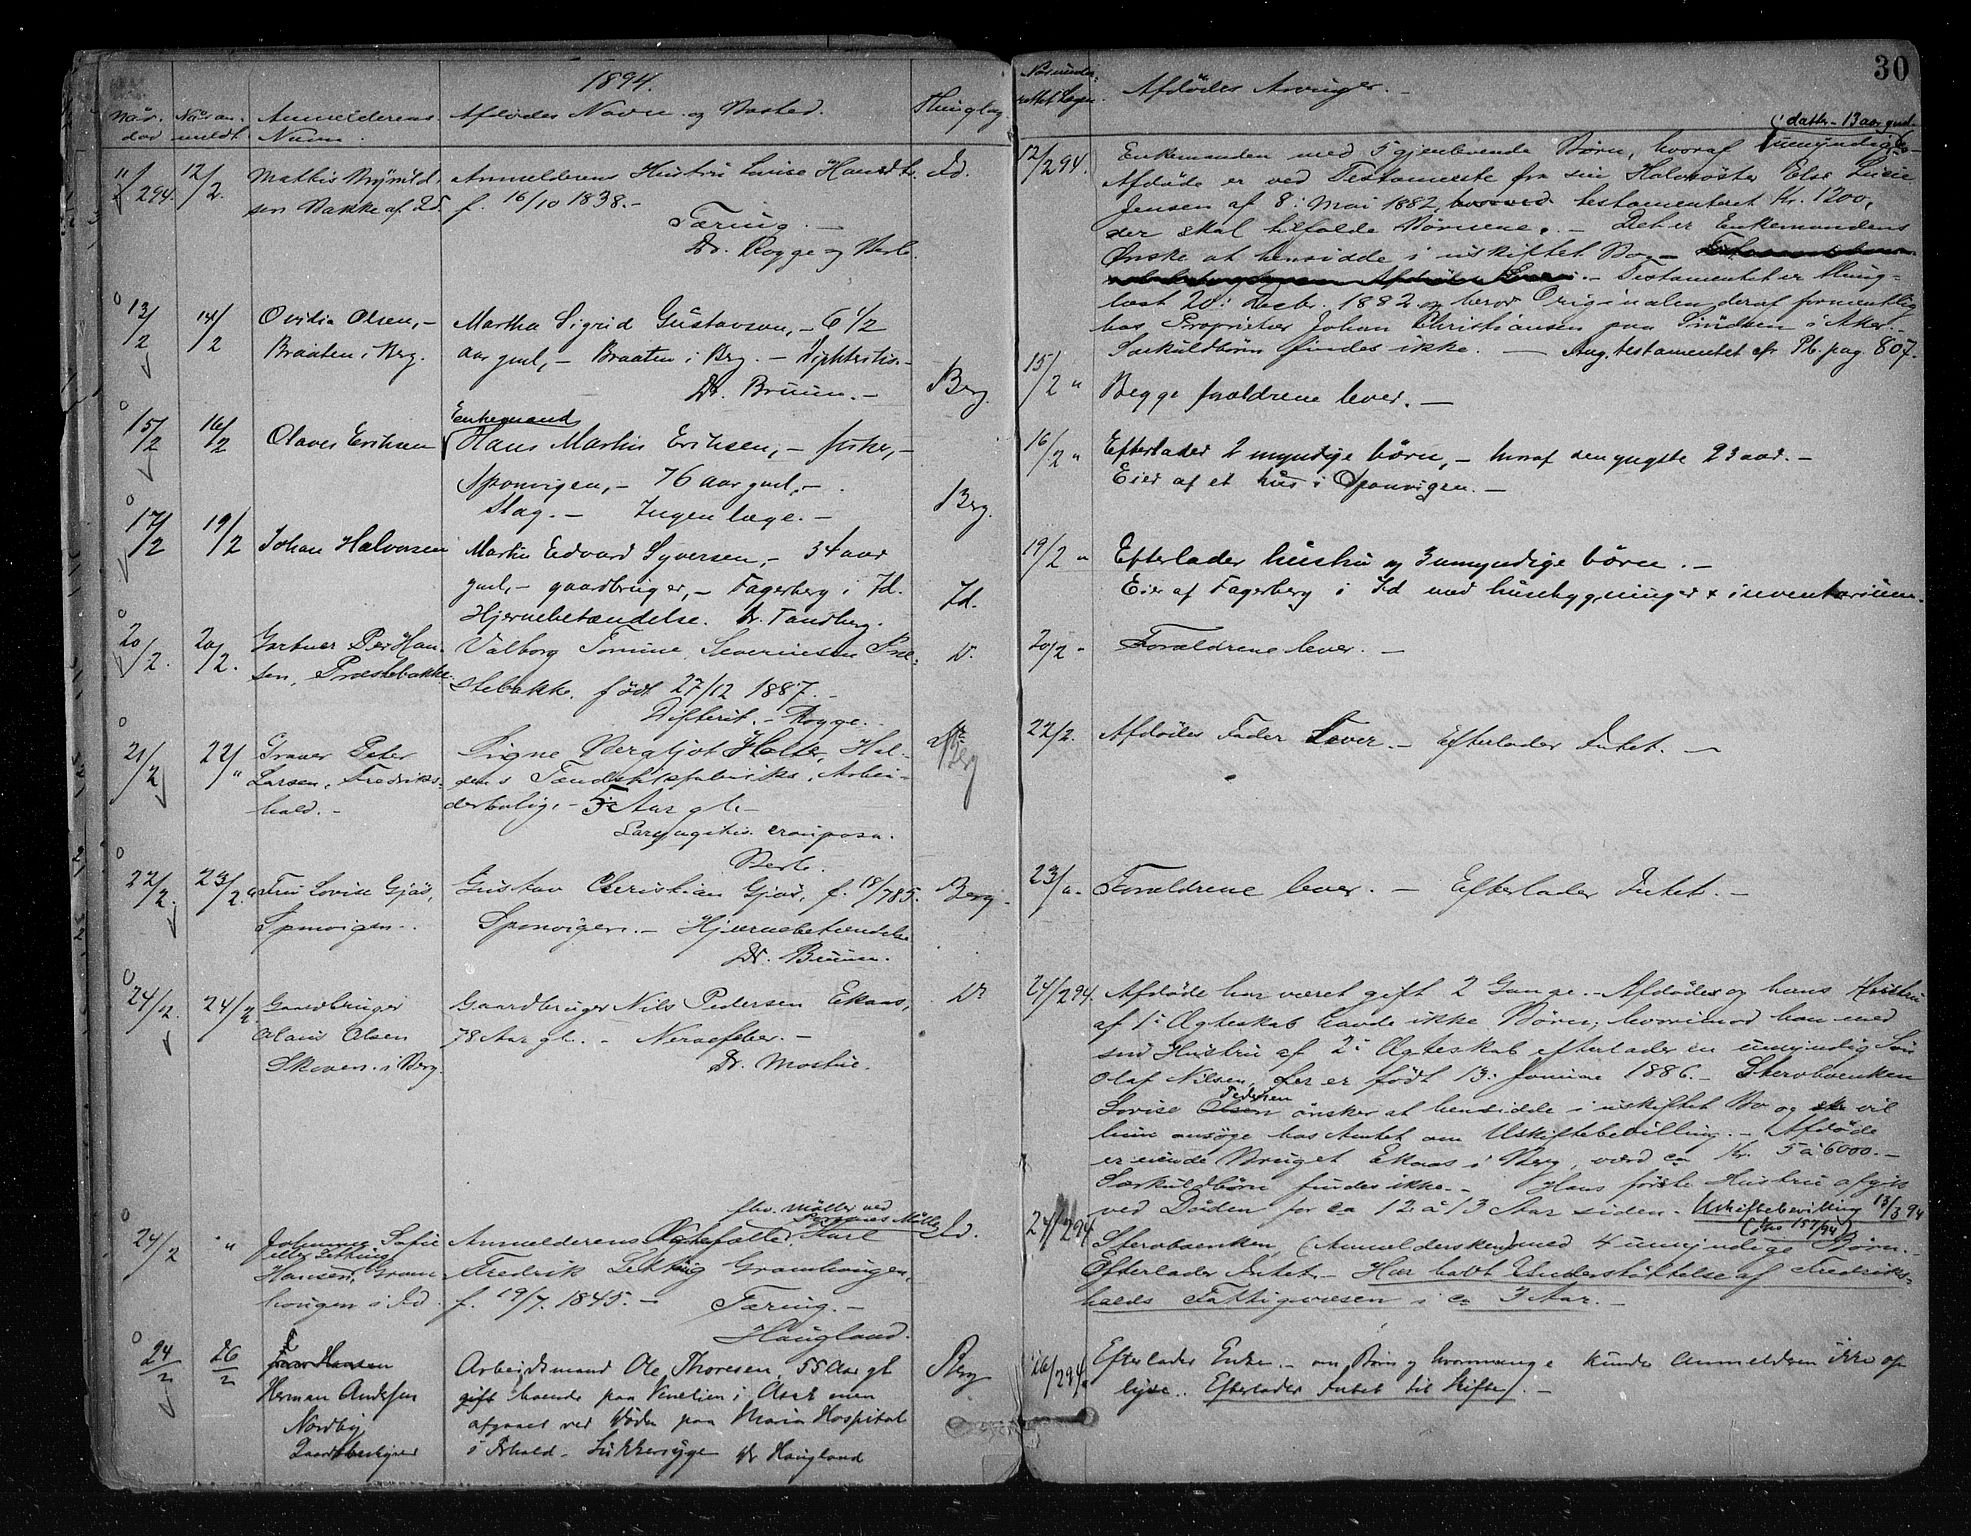 30
1894.
Når død
Når anmeldt.
Anmelderens Navn.
Afdødes Navn og Bosted.
Thinglag
Afdødes Arvinger. –
11/294.
12/2.
Mathis
sen Bakke af Id.
Anmelderens Hustru Lovise
f. 16/10 1838. –
Tæring. –
Dr. Rogge og
Id.
12/294.
(datter – 13 aar gml.
Enkemanden med 5 gjenlevende Børn, hvoraf 1 umyndig
Afdøde er ved Testamente fra sin Halvsøster Else Lucie
Jensen af 8: Mai 1882 testamenteret Kr. 1200,
der skal tilfalde Børnene. – Det er Enkemandens
Ønske at hensidde i uskiftet Bo –
Testamentet er thing-
læst 20: Decbr. 1882 og beror Originalen deraf formentlig
hos Proprietær Johan Christiansen paa i Aker. –
Særkuldbörn findes ikke. – Ang. testamentet cfr Pb. pag. 807.
13/2
14/2
Ovidia Olsen, –
Braaten i Berg.
Martha Sigrid Gustavson, – 6 1/2
aar gml, – Braaten i Berg. –
Dr. Bruun. –
Berg.
15/2 "
Begge forældrene lever. –
15/2
16/2
Olaves Eriksen
Enkemand
Hans Martin Eriksen, – fisker, –
Sponvigen, – 76 aar gml, –
Slag. – Ingen læge. –
Berg.
16/2 "
Efterlader 2 myndige börn, – hvoraf den yngste 23 aar. –
Eier af et hus i Sponvigen. –
17/2
19/2
Johan Halvorsen
Martin Edvard Syversen, – 34 aar
gml, – gaardbruger, – Fagerberg i Id.
Hjernebetændelse. Dr. Tandberg.
Id.
19/2 "
Efterlader hustru og 3 umyndige börn. –
Eier af Fagerberg i Id med husbygninger & inventarium.
20/2.
20/2.
Gartner Per Han-
sen, Præstebakke.
Valborg Tomine Severinsen Præ-
stebakke. født 27/12 1887. –
Difterit. – Rogge. –
20/2 "
Forældrene lever. –
21/2
22/"
Graver Peter
Larsen, Fredriks-
hald. –
Signe Bergljot Hal-
dens Tændstikfabriks, Arbei-
derbolig. – 5 Aar gl. –
Laryngitis crouposa.
Berg
22/2.
Afdødes Fader Lever. – Efterlader Intet. –
22/2.
23/2.
Fru Lovise Gjøs,
Sponvigen.
Gustav Christian Gjøs, f. 18/785.
Sponvigen. – Hjernebetændelse
Dr. Bruun.
Berg.
23/".
Forældrene lever. – Efterlader Intet. –
24/2.
24/2.
Gaardbruger
Olaus Olsen
Skoven i Berg.
Gaardbruger Nils Pedersen Ekaas,
78 Aar gl. – Nervefeber. –
Dr. Mostue.
24/294.
Afdøde har været gift 2 Gange. – Afdøde og hans Hustru
af 1: Ægteskab havde ikke Børn, hvorimod han med
sin Hustru af 2: Ægteskab efterlader en umyndig Søn
Olaf Nilsen, der er født 13: Januar 1886. – Sterboenken
Pedersen
Lovise Olsen ønsker at hensidde i uskiftet Bo og vil
hun ansøge hos Amtet om Uskiftebevilling. – Afdøde
er eiende Bruget Ekaas i Berg, værd ca Kr. 5 à 6000. –
Særkuldbörn findes ikke. – Hans første Hustru afgik
ved Døden for ca 12 à 13 Aar siden. – Uskiftebevilling 13/3 94
(Jno 157/94)
24/2
"
Johanne Sofie
Hansen, Gram-
hougen i Id.
fhv. Møller ved
Anmelderens Ægtefælle, Karl
Fredrik Gramhougen,
f. 19/7. 1845. –
Tæring. –
Haugland.
Id.
24/294
Sterboenken, (Anmeldersken) med 4 umyndige Børn. –
Efterlader Intet. – Har havt Understøttelse af Fredriks-
halds Fattigvæsen i ca 3 Aar. –
24/2
26/2
Herman Andersen
Nordby
Arbeidsmand Ole Thoresen 55 Aar gl
gift boende paa Venelien i men
afgaaet ved Døden paa Maria Hospital
i Frhald – Sukkersyge Dr Haugland
Berg
26/294
Efterlader Enke. – om Børn og hvormange kunde Anmelderen ikke op-
lyse. Efterlader Intet til Skifte. –